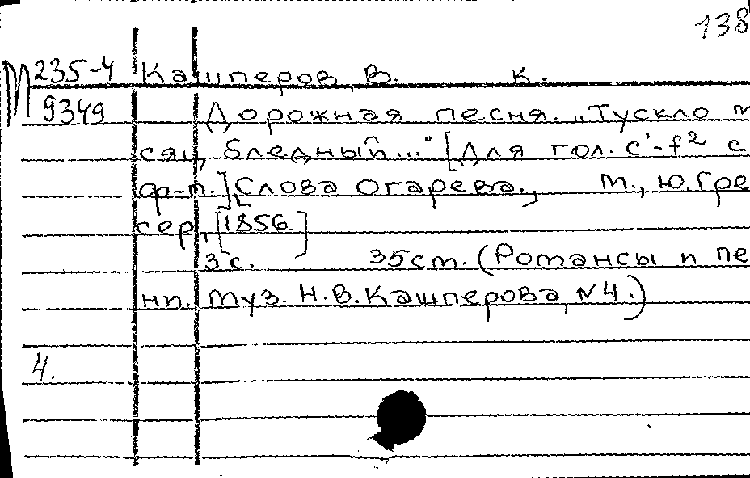 138
М 235-4 Кашперов, В. К.
9349 Дорожная песня. „Тускло м
сяц бледный..." [Для гол. c'-f² с
ф-п.] Слова Огарева., М., Ю. Гре
сер, [1856]
3 с. 35 см. (Романсы и пе
ни. Муз. Н.В. Кашперова, №4.)
4.